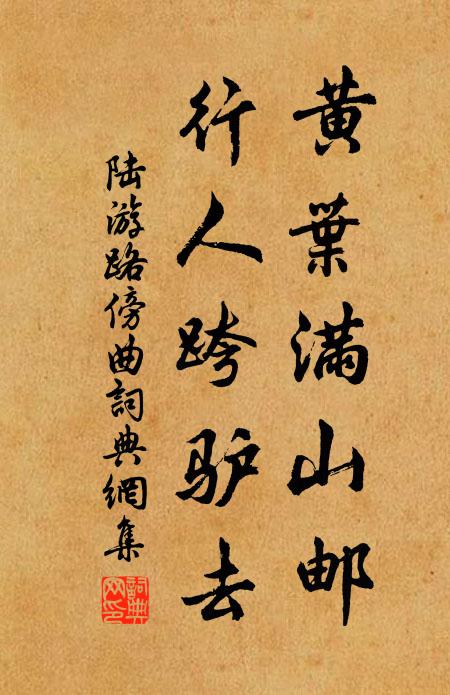 黄葉满山邮
行人跨驴去
陆游路傍曲詞典網集
詞典
网印